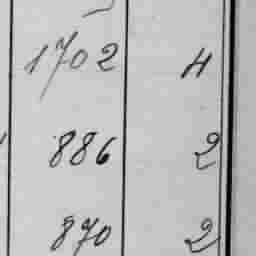 1702 4
886 2
870 2